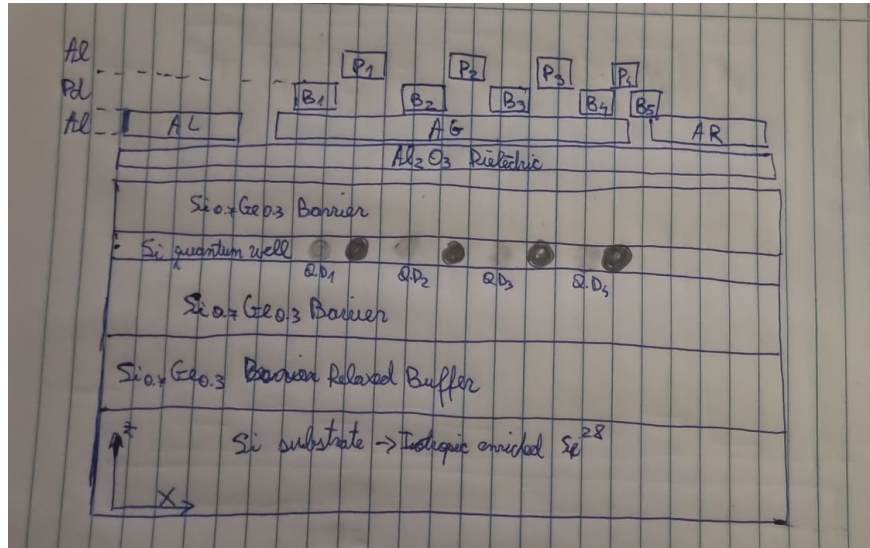 Al
P1 P2 P3 P4
Pd
B1 B2 B3 B4 B5
Al AL AG AR
Al2O3 Dielectric
Si0.7Ge0.3 Barrier
Si quantum well
QD1 QD2 QD3 QD4
Si0.7Ge0.3 Barrier
Si0.7Ge0.3 Relaxed Buffer
Z
Si substrate → Isotropic enriched Si28
X